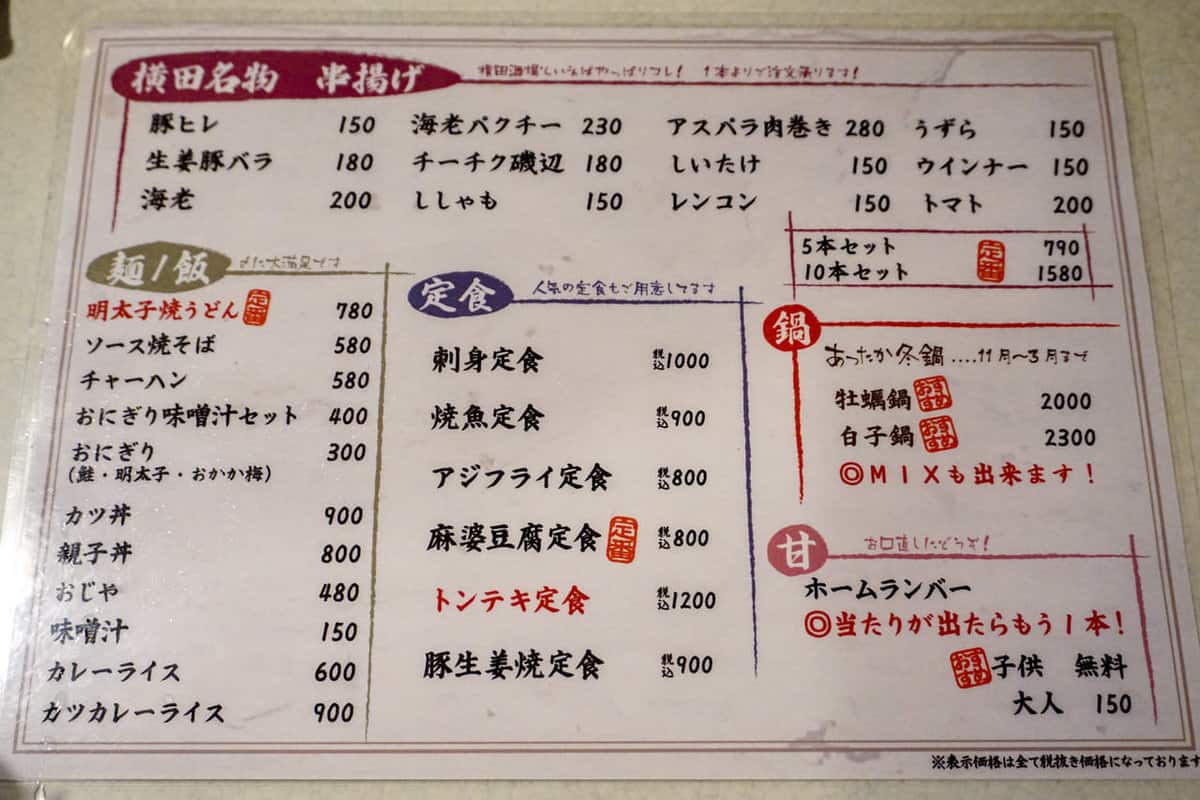 横田名物 串揚げ
横田酒場といえばやっぱりコレ! 1本よりご注文承ります!
豚ヒレ 150 海老パクチー 230 アスパラ肉巻き 280 うずら 150
生姜豚バラ 180 チーチク磯辺 180 しいたけ 150 ウインナー 150
海老 200 ししゃも 150 レンコン 150 トマト 200
5本セット 定番 790
10本セット 1580
麺/飯
〆に大満足です
明太子焼うどん 定番 780
ソース焼そば 580
チャーハン 580
おにぎり味噌汁セット 400
おにぎり 300
(鮭・明太子・おかか梅)
カツ丼 900
親子丼 800
おじや 480
味噌汁 150
カレーライス 600
カツカレーライス 900
定食
人気の定食もご用意してます
刺身定食 税込1000
焼魚定食 税込900
アジフライ定食 税込800
麻婆豆腐定食 定番 税込800
トンテキ定食 税込1200
豚生姜焼定食 税込900
鍋
あったか冬鍋....11月~3月まで
牡蠣鍋 おすすめ 2000
白子鍋 おすすめ 2300
◎MIXも出来ます!
甘
お口直しにどうぞ!
ホームランバー
◎当たりが出たらもう1本!
おすすめ 子供 無料
大人 150
※表示価格は全て税抜き価格になっております